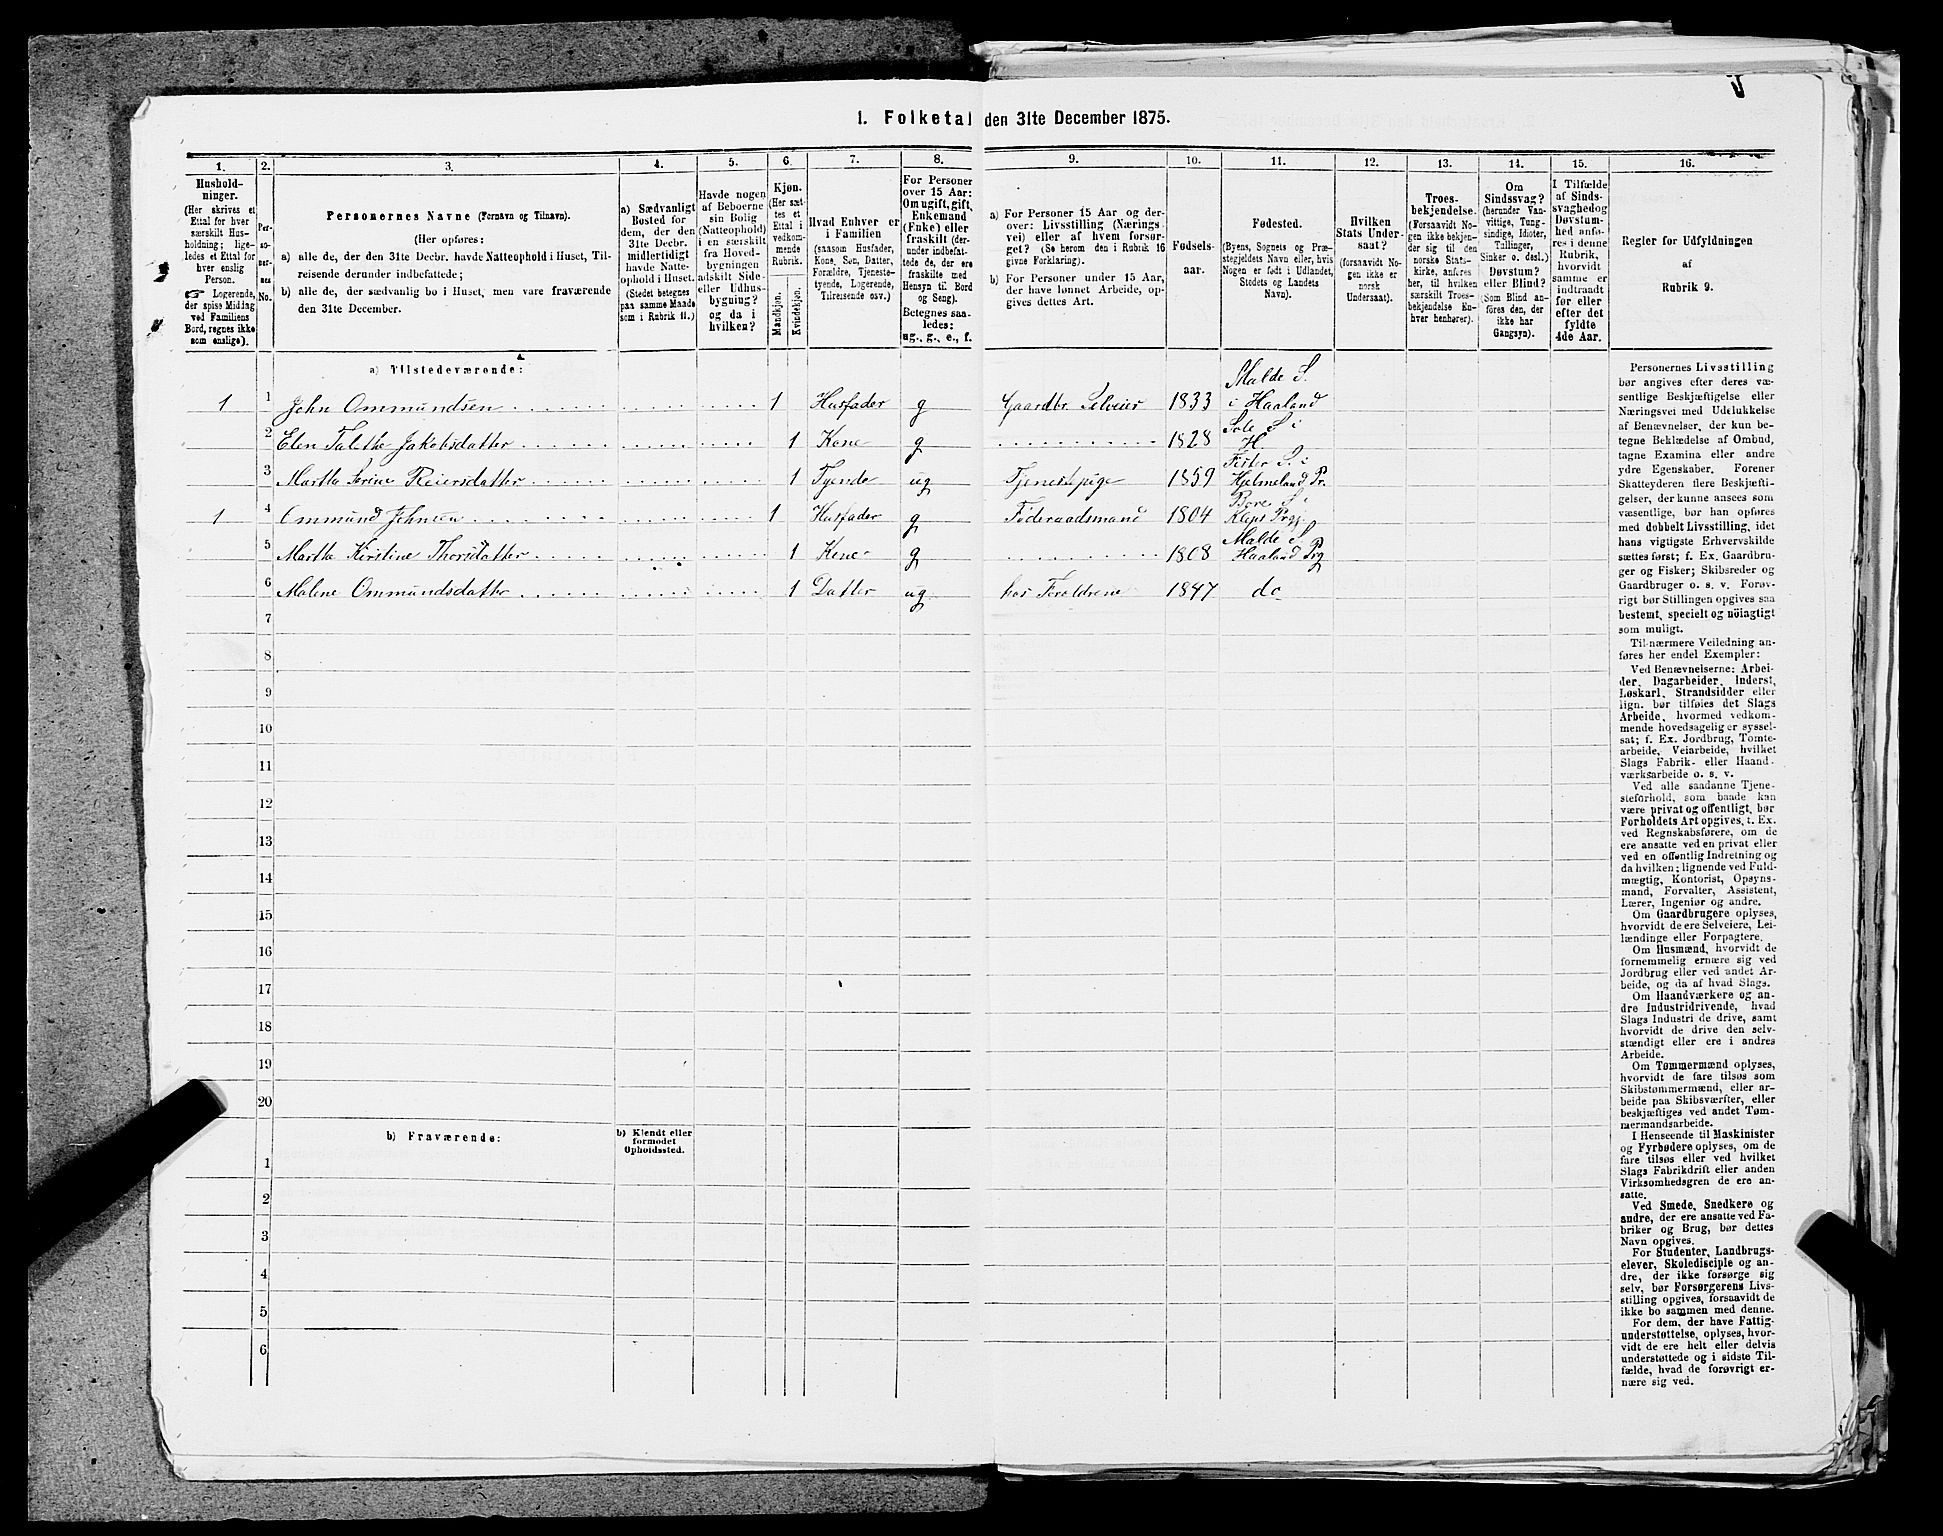 1. Folketal den 31te December 1875.
1.
2.
3.
4.
5.
6.
7.
8.
9.
10.
11.
12.
13.
14.
15.
16.
Hushold-
ninger.
(Her skrives et
Ettal for hver
særskilt Hus-
holdning; lige-
ledes et Ettal for
hver enslig
Person.
☞ Logerende,
der spise Middag
ved Familiens
Bord, regnes ikke
som enslige).
Per-
so-
ner-
nes
No.
Personernes Navne (Fornavn og Tilnavn).
(Her opføres:
a) alle de, der den 31te Decbr. havde Natteophold i Huset, Til-
reisende derunder indbefattede;
b) alle de, der sædvanlig bo i Huset, men vare fraværende
den 31te December.
a) Sædvanligt
Bosted for
dem, der den
31te Decbr.
midlertidigt
havde Natte-
ophold i Huset.
(Stedet betegnes
paa samme Maade
som i Rubrik 11.)
Havde nogen
af Beboerne
sin Bolig
(Natteophold)
i en særskilt
fra Hoved-
bygningen
adskilt Side-
eller Udhus-
bygning?
og da i
hvilken?
Kjøn.
(Her sæt-
tes et
Ettal i
vedkom-
mende
Rubrik.
Mandkjøn.
Kvindekjøn.
Hvad Enhver er
i Familien
(saasom Husfader,
Kone, Søn, Datter,
Forældre, Tjeneste-
tyende, Logerende,
Tilreisende osv.)
For Personer
over 15 Aar:
Om ugift, gift,
Enkemand
(Enke) eller
fraskilt (der-
under indbefat-
tede de, der ere
fraskilte med
Hensyn til Bord
og Seng).
Betegnes saa-
ledes:
ug., g., e., f.
a) For Personer 15 Aar og der-
over: Livsstilling (Nærings-
vei) eller af hvem forsør-
get? (Se herom den i Rubrik 16
givne Forklaring).
b) For Personer under 15 Aar,
der have lønnet Arbeide, op-
gives dettes Art.
Fødsels-
aar.
Fødested.
(Byens, Sognets og Præ-
stegjeldets Navn eller, hvis
Nogen er født i Udlandet,
Stedets og Landets
Navn).
Hvilken
Stats Under-
saat?
(forsaavidt No-
gen ikke er
norsk
Undersaat).
Troes-
bekjendelse.
(Forsaavidt No-
gen ikke bekjen-
der sig til den
norske Stats-
kirke, anføres
her, til hvilken
særskilt Troes-
bekjendelse En-
hver henhører).
Om
Sindssvag?
(herunder Van-
vittige, Tung-
sindige, Idioter,
Tullinger,
Sinker o. desl.)
Døvstum?
eller Blind?
(Som Blind an-
føres den, der
ikke har
Gangsyn).
I Tilfælde
af Sinds-
svaghed og
Døvstum-
hed anfø-
res i denne
Rubrik,
hvorvidt
samme er
indtraadt
før eller
efter det
fyldte
4de Aar.
Regler for Udfyldningen
af
Rubrik 9.
a) Tilstedeværende:
1 1 John Ommundsen 1 Husfader g Gaardbr. Selveier 1833 Malde S.
i Haaland
2 Elen Talette Jakobsdatter 1 Kone g 1828 Sole S i
H.
3 Martha Serine Reiersdatter 1 Tyende ug Tjenestpige 1859 Fister S. i
Hjelmeland Pr.
1 4 Ommund Johnsen 1 Husfader g Føderaadsmand 1804 Bore S i
Kleps Prgj.
5 Martha Kirstine Thorsdatter 1 Kone g 1808 Malde S
Haaland Prg
6 Malene Ommundsdatter 1 Datter ug hos Foreldrene 1847 do
7
8
9
10
11
12
13
14
15
16
17
18
19
20
b) Fraværende:
b) Kjendt eller
formodet
Opholdssted.
1
2
3
4
5
6
Personernes Livsstilling
bør angives efter deres væ-
sentlige Beskjæftigelse eller
Næringsvei med Udelukkelse
af Benævnelser, der kun be-
tegne Beklædelse af Ombud,
tagne Examina eller andre
ydre Egenskaber. Forener
Skatteyderen flere Beskjæfti-
gelser, der kunne ansees som
væsentlige, bør han opføres
med dobbelt Livsstilling, idet
hans vigtigste Erhvervskilde
sættes først; f. Ex. Gaardbru-
ger og Fisker; Skibsreder og
Gaardbruger o. s. v. Forøv-
rigt bør Stillingen opgives saa
bestemt, specielt og nöiagtigt
som muligt.
Til nærmere Veiledning an-
føres her endel Exempler:
Ved Benævnelserne: Arbei-
der, Dagarbeider, Inderst,
Løskarl, Strandsidder eller
lign. bør tilføies det Slags
Arbeide, hvormed vedkom-
mende hovedsagelig er syssel-
sat; f. Ex. Jordbrug, Tomte-
arbeide, Veiarbeide, hvilket
Slags Fabrik- eller Haand-
værksarbeide o. s. v.
Ved alle saadanne Tjene-
steforhold, som baade kan
være privat og offentligt, bør
Forholdets Art opgives, f. Ex.
ved Regnskabsførere, om de
ere ansatte ved en privat eller
ved en offentlig Indretning og
da hvilken; lignende ved Fuld-
mægtig, Kontorist, Opsyns-
mand, Forvalter, Assistent,
Lærer, Ingeniør og andre.
Om Gaardbrugere oplyses,
hvorvidt de ere Selveiere, Lei-
lændinge eller Forpagtere.
Om Husmænd, hvorvidt de
fornemmelig ernære sig ved
Jordbrug eller ved andet Ar-
beide, og da af hvad Slags.
Om Haandværkere og an-
dre Industridrivende, hvad
Slags Industri de drive, samt
hvorvidt de drive den selv-
stændigt eller ere i andres
Arbeide.
Om Tømmermænd oplyses,
hvorvidt de fare tilsøs som
Skibstømmermænd, eller ar-
beide paa Skibsværfter, eller
beskjæftiges ved andet Tøm-
mermandsarbeide.
I Henseende til Maskinister
og Fyrbødere oplyses, om de
fare tilsøs eller ved hvilket
Slags Fabrikdrift eller anden
Virksomhedsgren de ere an-
satte.
Ved Smede, Snedkere og
andre, der ere ansatte ved Fa-
briker og Brug, bør dettes
Navn opgives.
For Studenter, Landbrugs-
elever, Skoledisciple og an-
dre, der ikke forsørge sig
selv, bør Forsørgerens Livs-
stilling opgives, forsaavidt de
ikke bo sammen med denne.
For dem, der have Fattig-
understøttelse, oplyses, hvor-
vidt de ere helt eller delvis
understøttede og i sidste Til-
fælde, hvad de forøvrigt er-
nære sig ved.